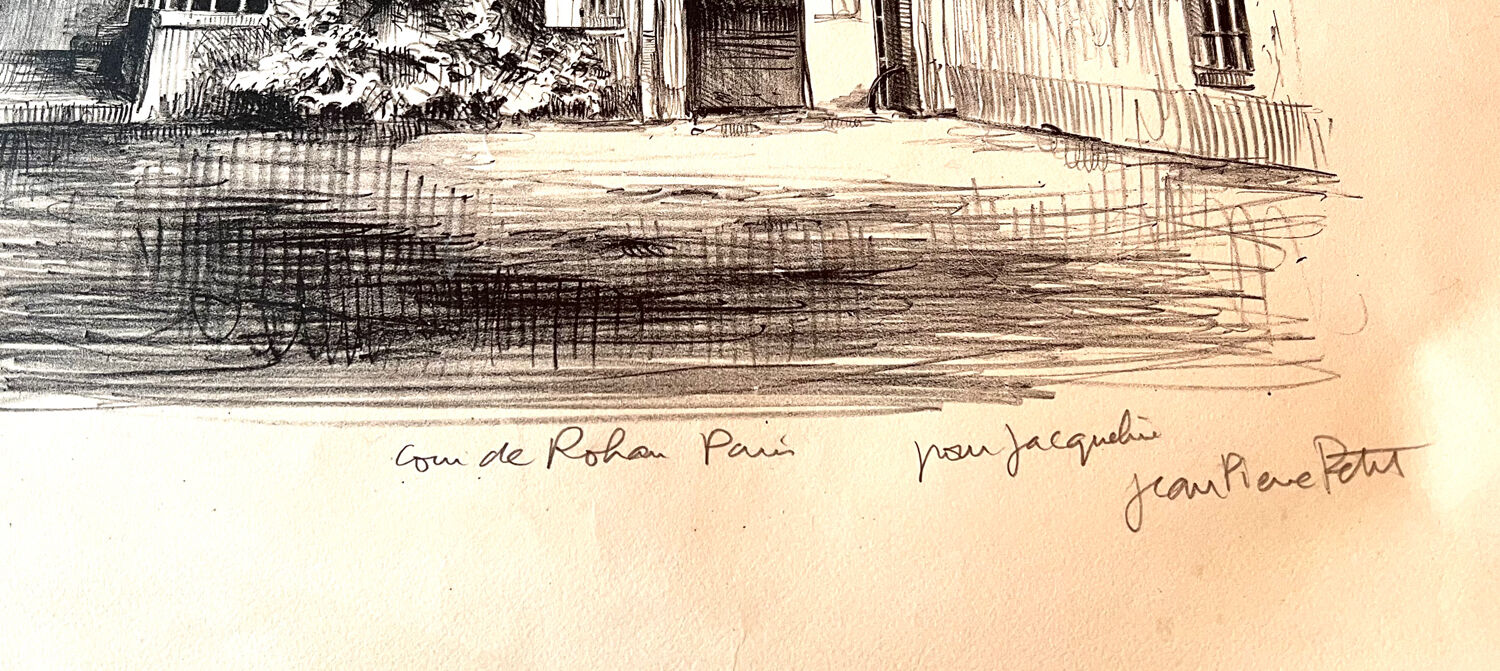 cour de Rohan Paris
pour Jacqueline
Jean Pierre Petit